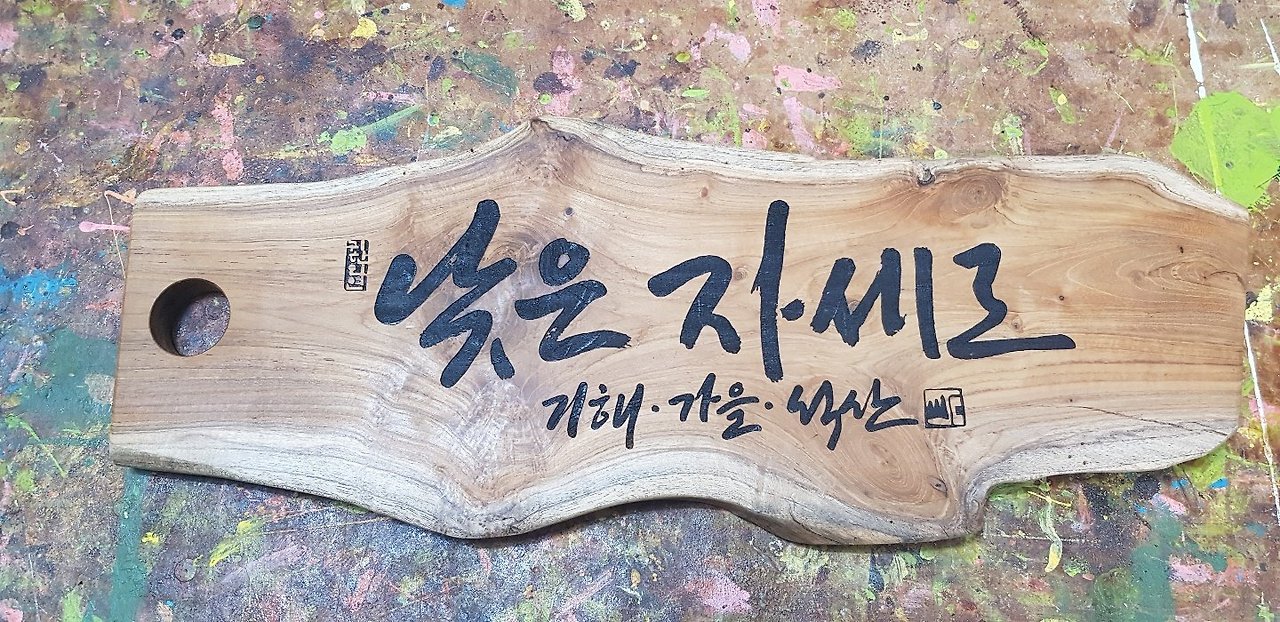 낮은 자세로
기해·가을·석산